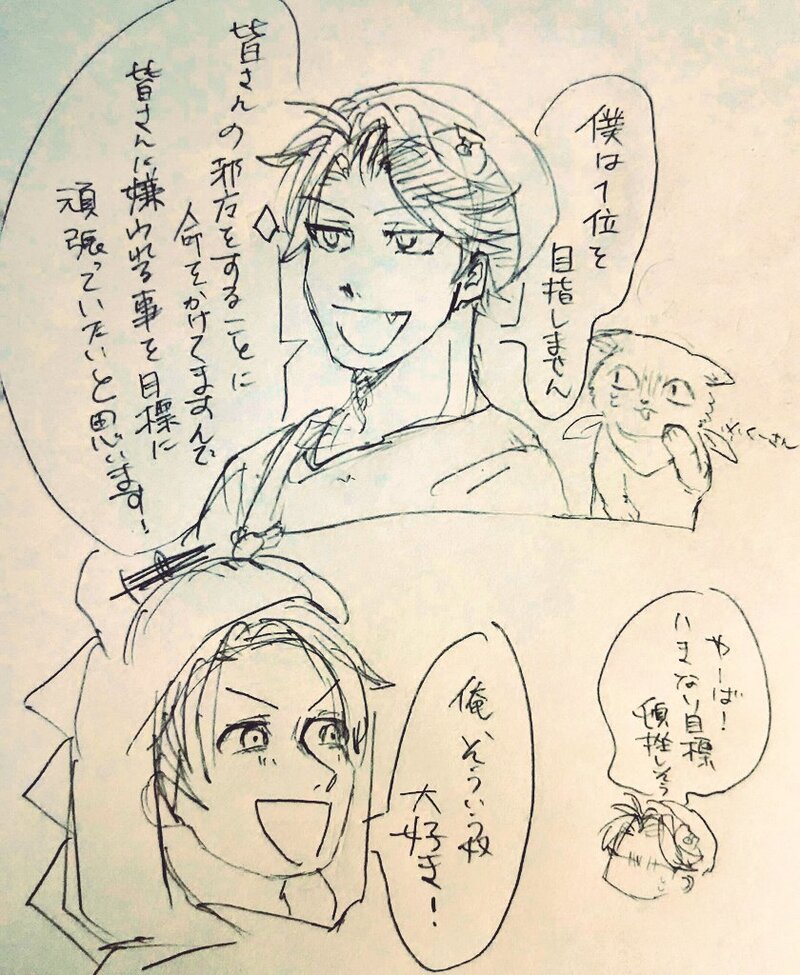 僕は1位を
目指しません
皆さんの邪友をすることに
命をかけてますんで
皆さんに嫌われる事を目標に
頑張っていたいと思います!
俺、そういう奴
大好き!
やーば!
いきなり目標
頓挫しそう